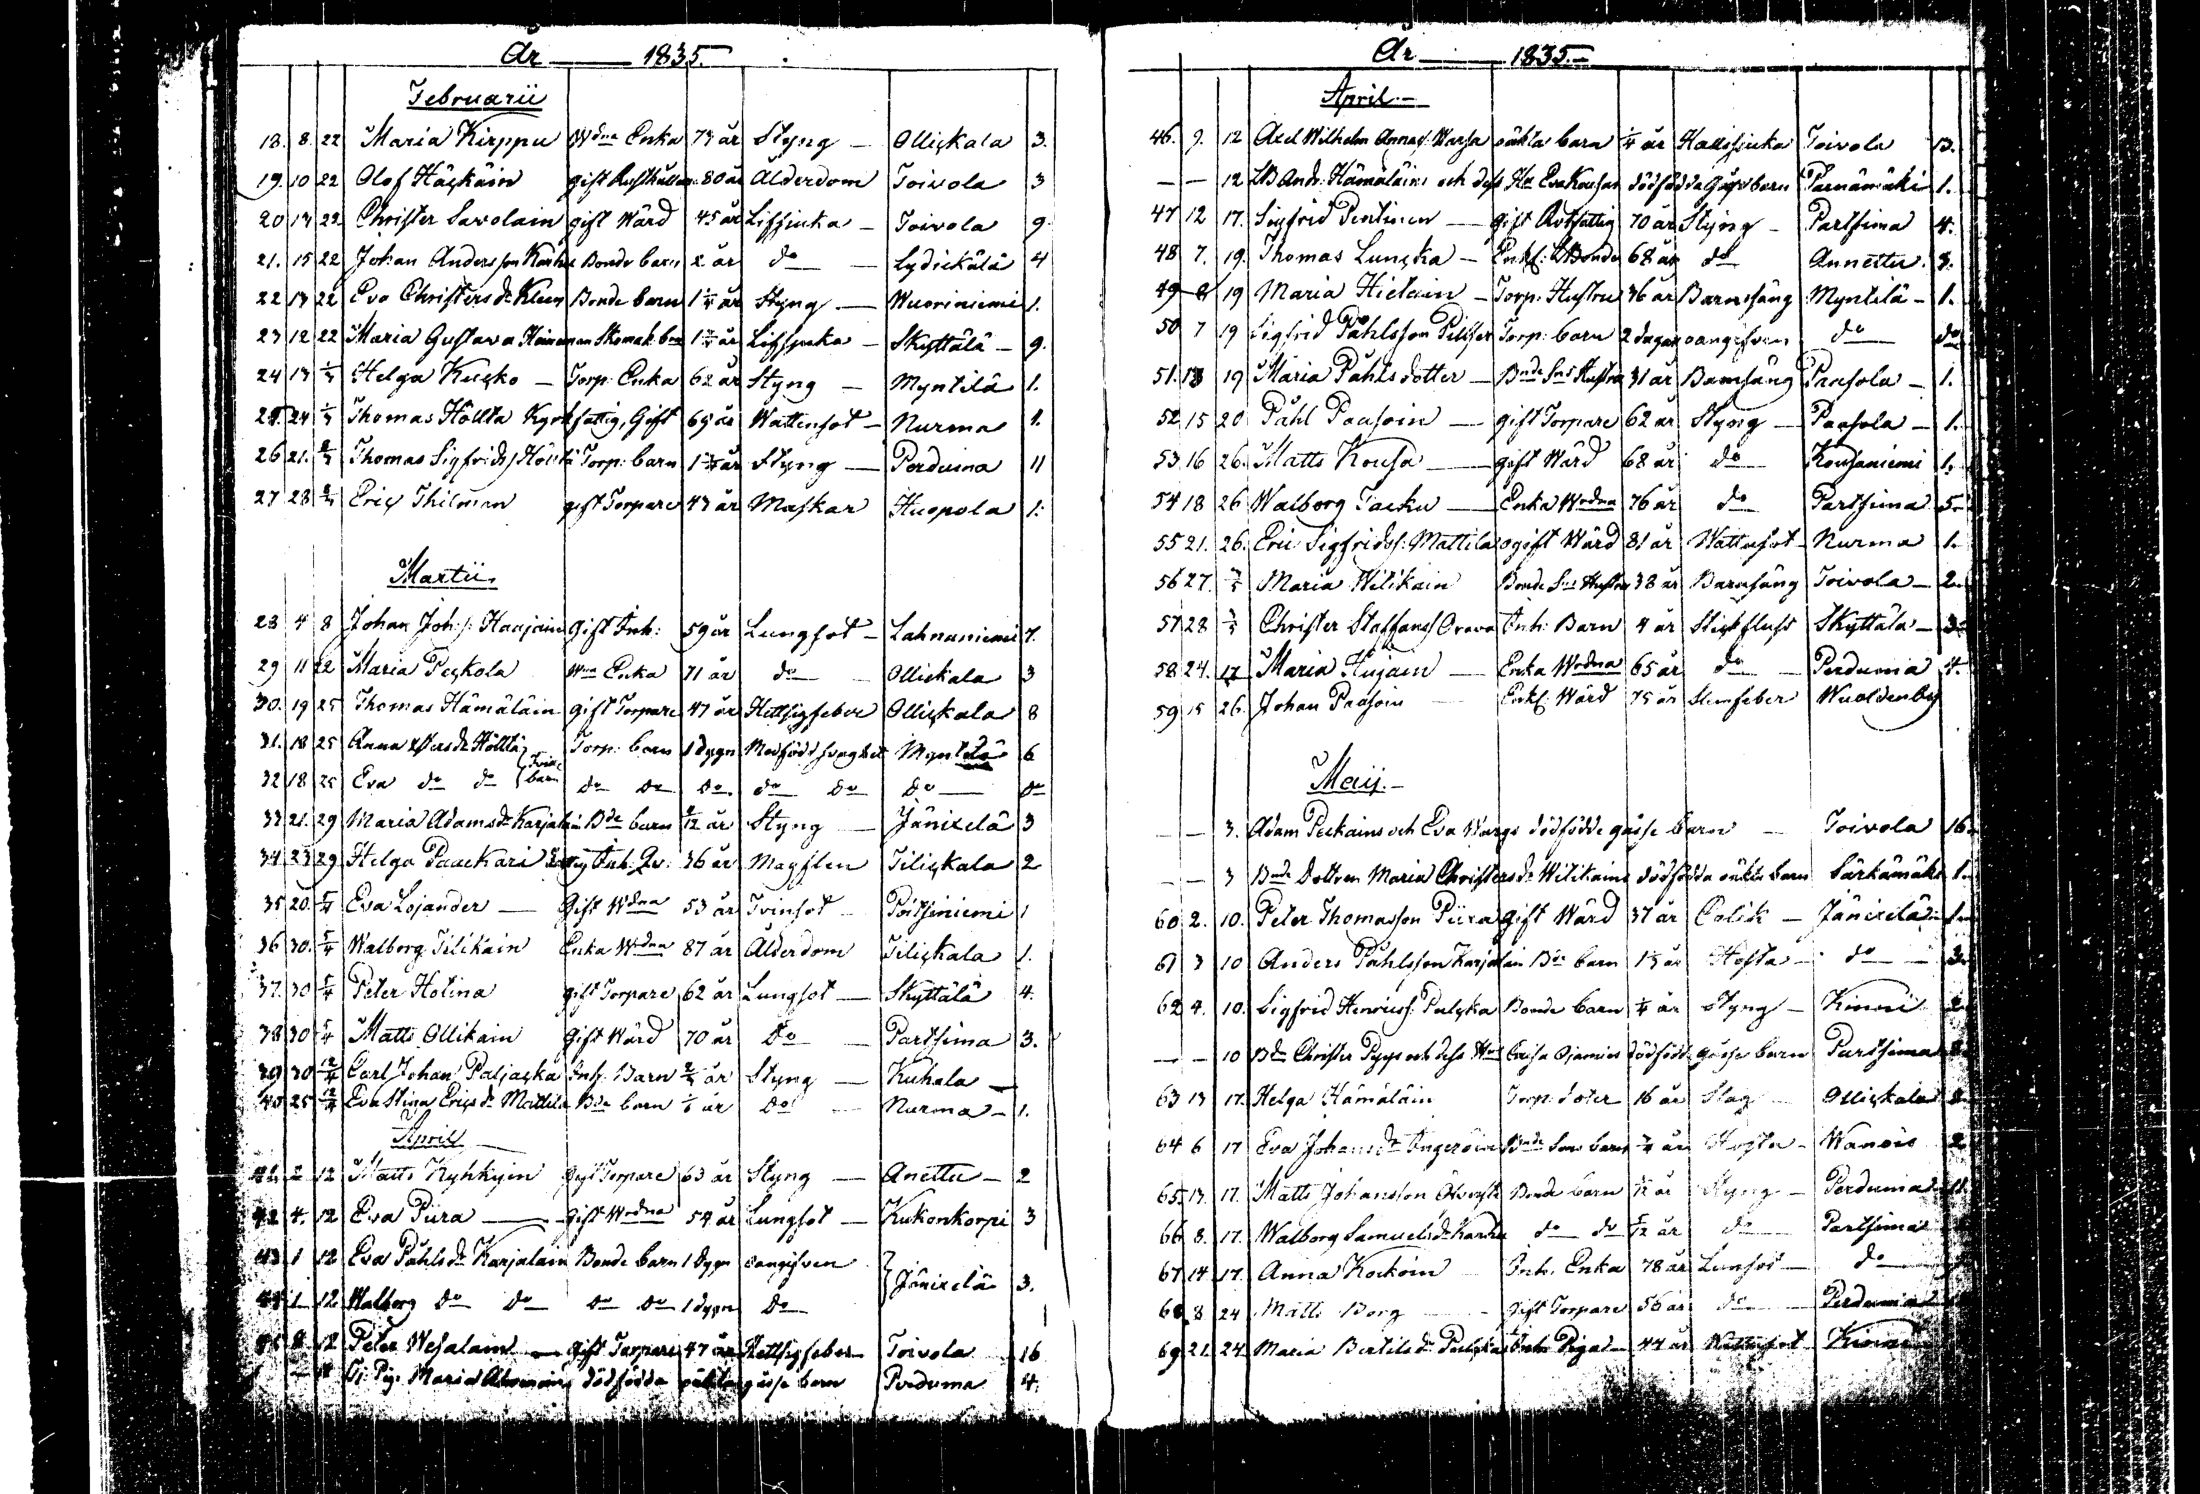 År 1835.
Februarii
18. 8. 22 Maria Kirppu Wdna Enka 73 år Styng Ollickala 3.
19. 10 22 Olof Häckäin gift 80 år Ålderdom Toivola 3
20 13 22 Christer Savolain gift Wärd 45 år Lissjuka Toivola 9
21. 15 22 Johan Andersson Bonde barn 2 år do Lydickälä 4
22 13 22 Eva Christersdr Bonde barn år Styng Wuoriniemi 1.
23 12 22 Maria Gustava år Skyttälä 9.
24 13 1/3 Helga Kucko Torp: Enka 62 år Styng Myntilä 1.
25. 24 1/3 Thomas Höltta Kyrkfattig, Gift 69 år Wattensot Nurma 1.
26 21. 8/3 Thomas Sigfrids: Torp: barn år Styng Perduma 11
27 28 8/3 Eric Thilman gift Torpare 43 år Maskar Huopola 1.
Martii
28 4 8 Johan Joh:s: Haajain Gift Inh: 59 år Lungsot Lahnaniemi 7.
29 11 22 Maria Peckola Wna Enka 71 år do Ollickala 3
30. 19 25 Thomas Hämäläin gift Torpare 47 år Hettsigfeber Ollickala 8
31. 18 25 Anna Höltta Torp: barn 1 dygn Medfödd svaghet Myntilä 6
32 18 25 Eva do do barn do do do do do do do
33 21. 29 Maria Adamsdr Karjalain Bde barn /12 år Styng Jänixelä 3
34 23 29 Helga Paackari Inh: 36 år Magplen Tilickala 2
35 20. 5/4 Eva Lojander Gift Wdna 53 år Tvinsot Poitsiniemi 1
36 30. 5/4 Walborg Tilikain Enka Wrdna 87 år Ålderdom Tilickala 1.
37. 30 5/4 Peter Hotina gift Torpare 62 år Lungsot Skyttälä 4.
38 30 5/4 Matts Ollikain Gift Wärd 70 år do Partsima 3.
39 30 12/4 Carl Johan Paljacka Inh. Barn år Styng Kuhala
40 25 12/4 Eva Stina Ericsdr Mattila Bde barn år do Nurma 1.
April
41. 2 12 Matts Kyhkyin Gift Torpare 63 år Styng Anettu 2
42 4. 12 Eva Piira gift Wrdna 54 år Lungsot Kukonkorpi 3
43 1 12 Eva Påhlsdr Karjalain Bonde barn 1 dygn oangifven Jänixelä 3.
44 1 12 Walborg do do do do 1 dygn do
45 8 12 Peter Wesalain gift Torpare 47 år Hettsigfeber Toivola 16
Maria dödfödda oäkta gosse barn Perduma 4.
År 1835.
April
46. 9. 12 Axel Wilhelm oäkta barn 1/4 år Toivola 13.
12 And: Hämäläins och dess Hu Eva dödfödda barn Parnämäki 1.
47 12 17. Sigfrid Pentinen gift 70 år Styng Partsima 4.
48 7. 19. Thomas Luncka 68 år do Annettu 3.
49 8 19 Maria Hietain Torp: Hustru 36 år Barnsäng Myntilä 1.
50 7 19 Sigfrid Påhlsson Torp: barn 2 dagar oangifven do do
51. 13 19 Maria Påhlsdotter Bnde Sns Hustru 31 år Barnsäng Paasola 1.
52 15 20 Påhl Paasoin gift Torpare 62 år Styng Paasola 1.
53 16 26. Matts Kousa gift Wärd 68 år do Kousaniemi 1.
54 18 26 Walborg Tacku Enka Wrdna 76 år do Partsima 5
55 21. 26. Eric Sigfridss: Mattila ogift Wärd 81 år Wattusot Nurma 1.
56 27. 3/5 Maria Wilikain Bonde Hustru 38 år Barnsäng Toivola 2
57 28 3/5 Christer Staffanss Orava Inh: Barn 4 år Stickfluss Skyttälä 3
58 24. 17 Maria Hujain Enka Wrdna 65 år do Perduma 4.
59 15 26. Johan Paasoin Enkl: Wärd 75 år feber
Maij.
3. Adam Peckains och Eva dödfödde gosse barn Toivola 16
3 Bnde Dottren Maria Christersdr Wilikains dödfödda oäkta barn Särkämäki 1
60 2. 10. Peter Thomasson Piira gift Wärd 37 år Colik Jänixelä 1
61 3 10 Anders Påhlsson Karjalain Bde barn 1 år Hosta do 3
62 4. 10. Sigfrid Henricss: Pulcka Bonde barn 1/4 år Styng Kinni
10 Christer och dess dödfödde gosse barn Partsima
63 13 17. Helga Hämäläin Torp: doter 16 år Slag Ollickala
64 6 17 Eva Johansdr Bnde Sons barn år Hosta
65 13. 17. Matts Johansson Bonde barn /12 år Styng Perduma
66 8. 17. Walborg Samuelsdr do do /12 år do Partsima
67 14 17. Anna Kockoin Inh: Enka 78 år Lunsot do
68 8 24 Matts Borg Gift Torpare 56 år do Perduma
69 21. 24 Maria Bertilsdr Pulcka Inh: Piga 44 år Kinni